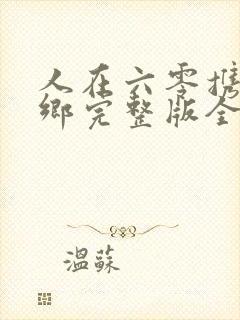 人在六零携
鄉完整版全
溫蘇